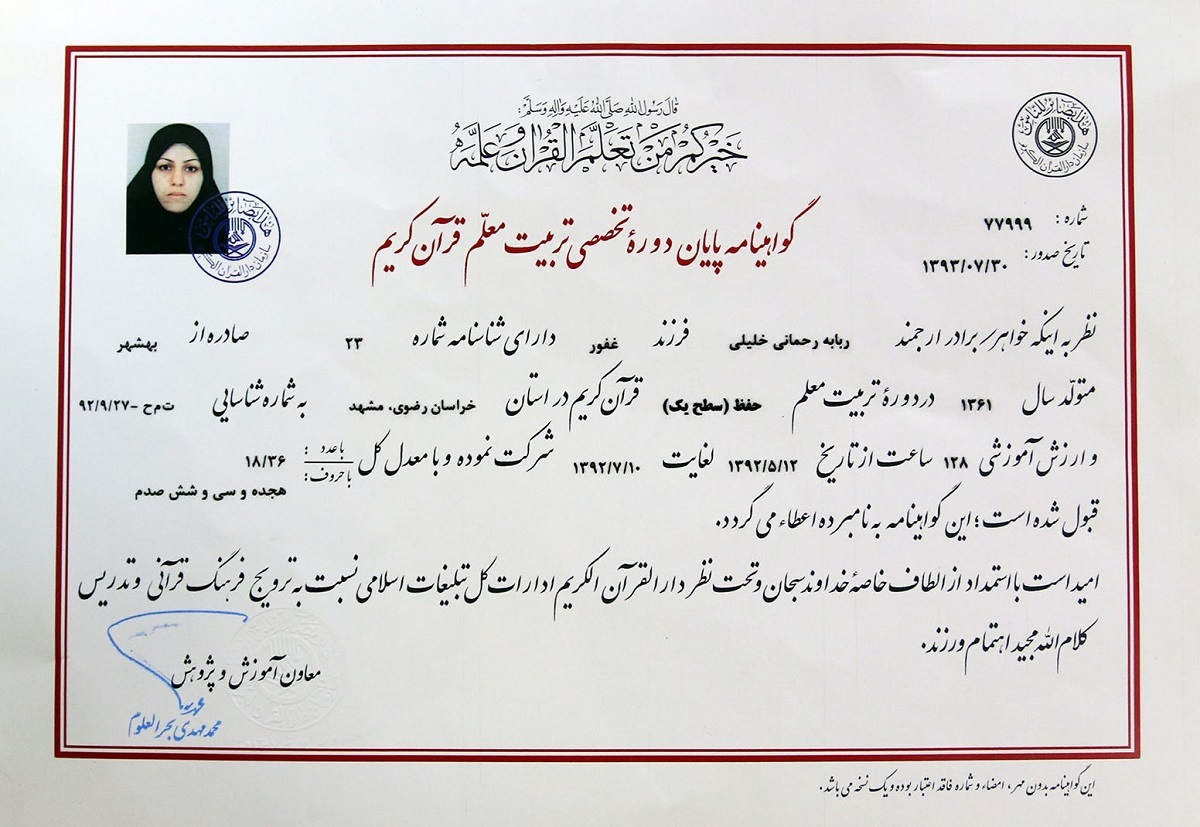 قالَ رَسُولُ اللهِ صَلَّى اللهُ عَلَيْهِ وَآلِهِ وَسَلَّمَ:
خَيْرُكُمْ مَنْ تَعَلَّمَ الْقُرْآنَ وَعَلَّمَهُ
هذا بصائر للناس
سازمان دارالقرآن الکریم
گواهینامه پایان دورهٔ تخصصی تربیت معلّم قرآن کریم
شماره : ۷۷۹۹۹
تاریخ صدور: ۱۳۹۳/۰۷/۳۰
نظر به اینکه خواهر/برادر ارجمند ربابه رحمانی خلیلی فرزند غفور دارای شناسنامه شماره ۲۳ صادره از بهشهر
متولّد سال ۱۳۶۱ در دورهٔ تربیت معلم حفظ (سطح یک) قرآن کریم در استان خراسان رضوی، مشهد به شماره شناسایی ت‌م‌ح -۹۲/۹/۲۷
و ارزش آموزشی ۱۲۸ ساعت از تاریخ ۱۳۹۲/۵/۱۲ لغایت ۱۳۹۲/۷/۱۰ شرکت نموده و با معدل کل با عدد : ۱۸/۳۶
با حروف: هجده و سی و شش صدم
قبول شده است؛ این گواهینامه به نامبرده اعطاء می گردد.
امید است با استمداد از الطاف خاصهٔ خداوند سبحان و تحت نظر دارالقرآن الکریم ادارات کل تبلیغات اسلامی نسبت به ترویج فرهنگ قرآنی و تدریس
کلام الله مجید اهتمام ورزند.
معاون آموزش و پژوهش
محمدمهدی بحرالعلوم
این گواهینامه بدون مهر، امضاء و شماره فاقد اعتبار بوده و یک نسخه می باشد.